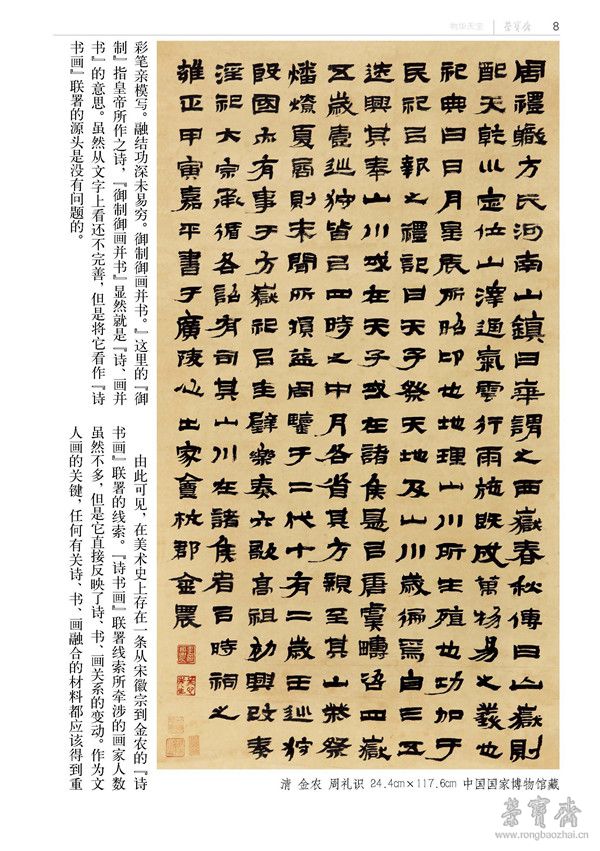 物华天宝 荣宝斋 8
周禮職方氏河南山鎮曰華謂之西嶽春秋傳曰山嶽則
配天乾以定位山澤通氣雲行雨施既成萬物易之義也
祀典曰日月星辰所昭卬也地理山川所生殖也功加于
民祀以報之禮記曰天子祭天地及山川歲徧焉自三五
迭興其奉山川或在天子或在諸侯是以唐虞疇咨四嶽
五歲壹巡狩皆以四時之中月各省其方親至其山柴祭
燔燎夏商則未聞所損益周鑒于二代十有二歲王巡狩
殷國亦有事于方嶽祀以圭璧樂奏六歌高祖初興改秦
淫祀大宗承循各詔有司其山川在諸侯者以時祠之
雍正甲寅嘉平書于廣陵心出家盦杭郡金農
清 金农 周礼识 24.4cm×117.6cm 中国国家博物馆藏
彩笔亲模写。融结功深未易穷。御制御画并书。』这里的『御
制』指皇帝所作之诗，『御制御画并书』显然就是『诗、画并
书』的意思。虽然从文字上看还不完善，但是将它看作『诗
书画』联署的源头是没有问题的。
由此可见，在美术史上存在一条从宋徽宗到金农的『诗
书画』联署的线索。『诗书画』联署线索所牵涉的画家人数
虽然不多，但是它直接反映了诗、书、画关系的变动。作为文
人画的关键，任何有关诗、书、画融合的材料都应该得到重
荣宝斋
www.rongbaozhai.cn